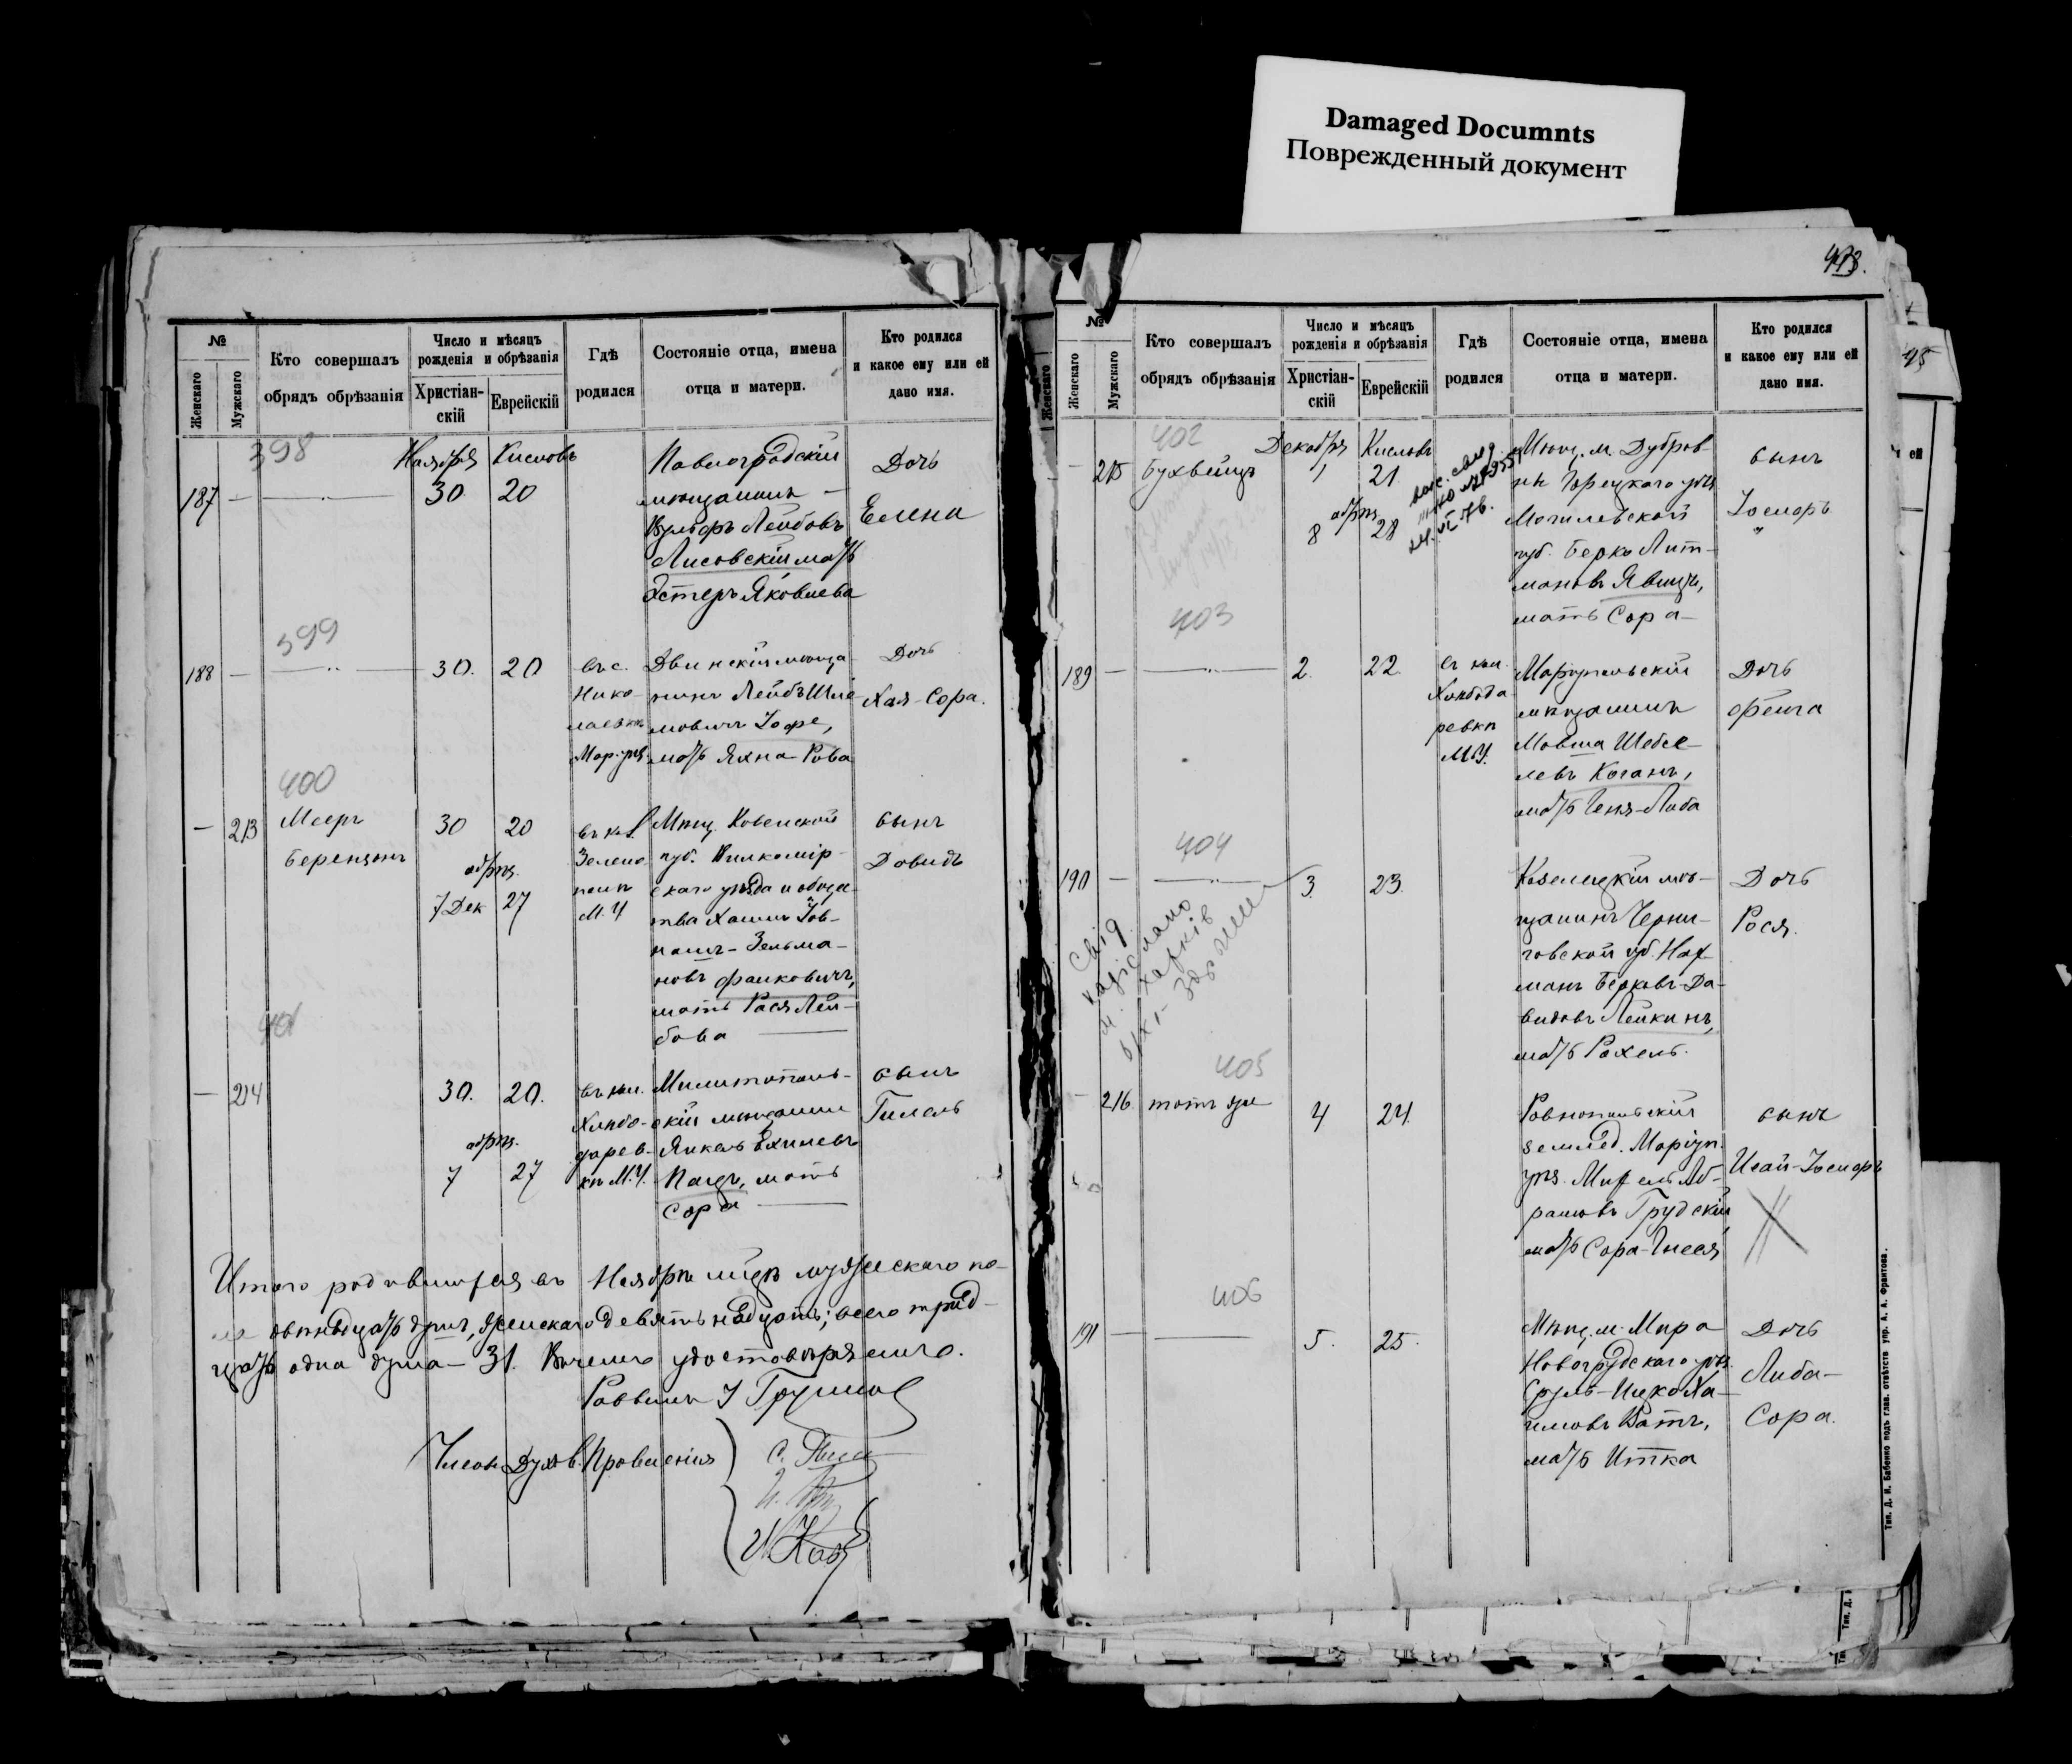 Damaged Documnts
Поврежденный документ
№
Женскаго
Мужскаго
Кто совершалъ
обрядъ обрѣзанія
Число и мѣсяцъ
рожденія и обрѣзанія
Христіан-
скій
Еврейскій
Гдѣ
родился
Состояніе отца, имена
отца и матери.
Кто родился
и какое ему или ей
дано имя.
398
187 —
Ноября Кисловъ
30 20
Павлоградскій
мѣщанинъ
Вульфъ Лейбовъ
Лисовскій мать
Эстеръ Яковлева
Дочь
Елена
399
188 —
30. 20
въ с.
Нико-
лаевкѣ
Мар. уѣз.
Двинскій мѣща-
нинъ Лейбъ Шле-
мовичъ Іофе,
мать Яхна-Рова
Дочь
Хая-Сора.
400
— 213
Мееръ
Беренцонъ
30 20
обрѣз.
7 Дек 27
въ к.
Зелено-
полѣ
М. У
Мѣщ. Ковенской
губ. Вилкомір-
скаго уѣзда и общес-
тва Хаимъ Іов-
нашъ-Зельма-
новъ Фалковичъ,
мать Рася Лей-
бова
сынъ
Довидъ
401
— 214
30. 20.
обрѣз.
7 27
въ кол.
Хлѣбо-
дарев-
кѣ М.У.
Милитополь-
скій мѣщанин
Янкель Ехилевъ
Пацъ, мать
Сора
сынъ
Гилель
Итого родившихся въ Ноябрѣ м-цѣ мужескаго по-
ла двѣнадцать душъ, женскаго девятнадцать; всего трид-
цать одна душа — 31. В чемъ удостовѣряемъ.
Раввинъ
Члены Духов. Правленія
№
Женскаго
Мужскаго
Кто совершалъ
обрядъ обрѣзанія
Число и мѣсяцъ
рожденія и обрѣзанія
Христіан-
скій
Еврейскій
Гдѣ
родился
Состояніе отца, имена
отца и матери.
Кто родился
и какое ему или ей
дано имя.
402
— 215
Бухвейцъ
Декабря Кисловъ
1 21
обрѣз.
8 28
Мѣщ. м. Дубров-
ны Горецкаго уѣз.
Могилевской
губ. Берко Лит-
мановъ Явицъ,
мать Сора
сынъ
Іосифъ
403
189 —
2. 22
въ кол.
Хлѣбода-
ревкѣ
М.У.
Маріупольскій
мѣщанинъ
Мовша Шебсе-
левъ Коганъ,
мать Геня-Либа
Дочь
Фейга
404
190 —
3. 23.
Козелецкій мѣ-
щанинъ Черни-
говской губ. Нах-
манъ Берковъ-Да-
видовъ Лейкинъ,
мать Рохель.
Дочь
Рося.
405
— 216
тотъ же
4 24.
Ровнопольскій
землед. Маріуп.
уѣз. Михель Аб-
рамовъ Грудскій
мать Сора-Гнеся
сынъ
Исай-Іосифъ
406
191 —
5. 25.
Мѣщ. м. Мира
Новогрудскаго уѣз.
Сруль-Ицко Ха-
имовъ Ватъ,
мать Итка
Дочь
Либа-
Сора.
Тип. Д. И. Бабенко подъ глав. отвѣтств упр. А. А. Франтова.